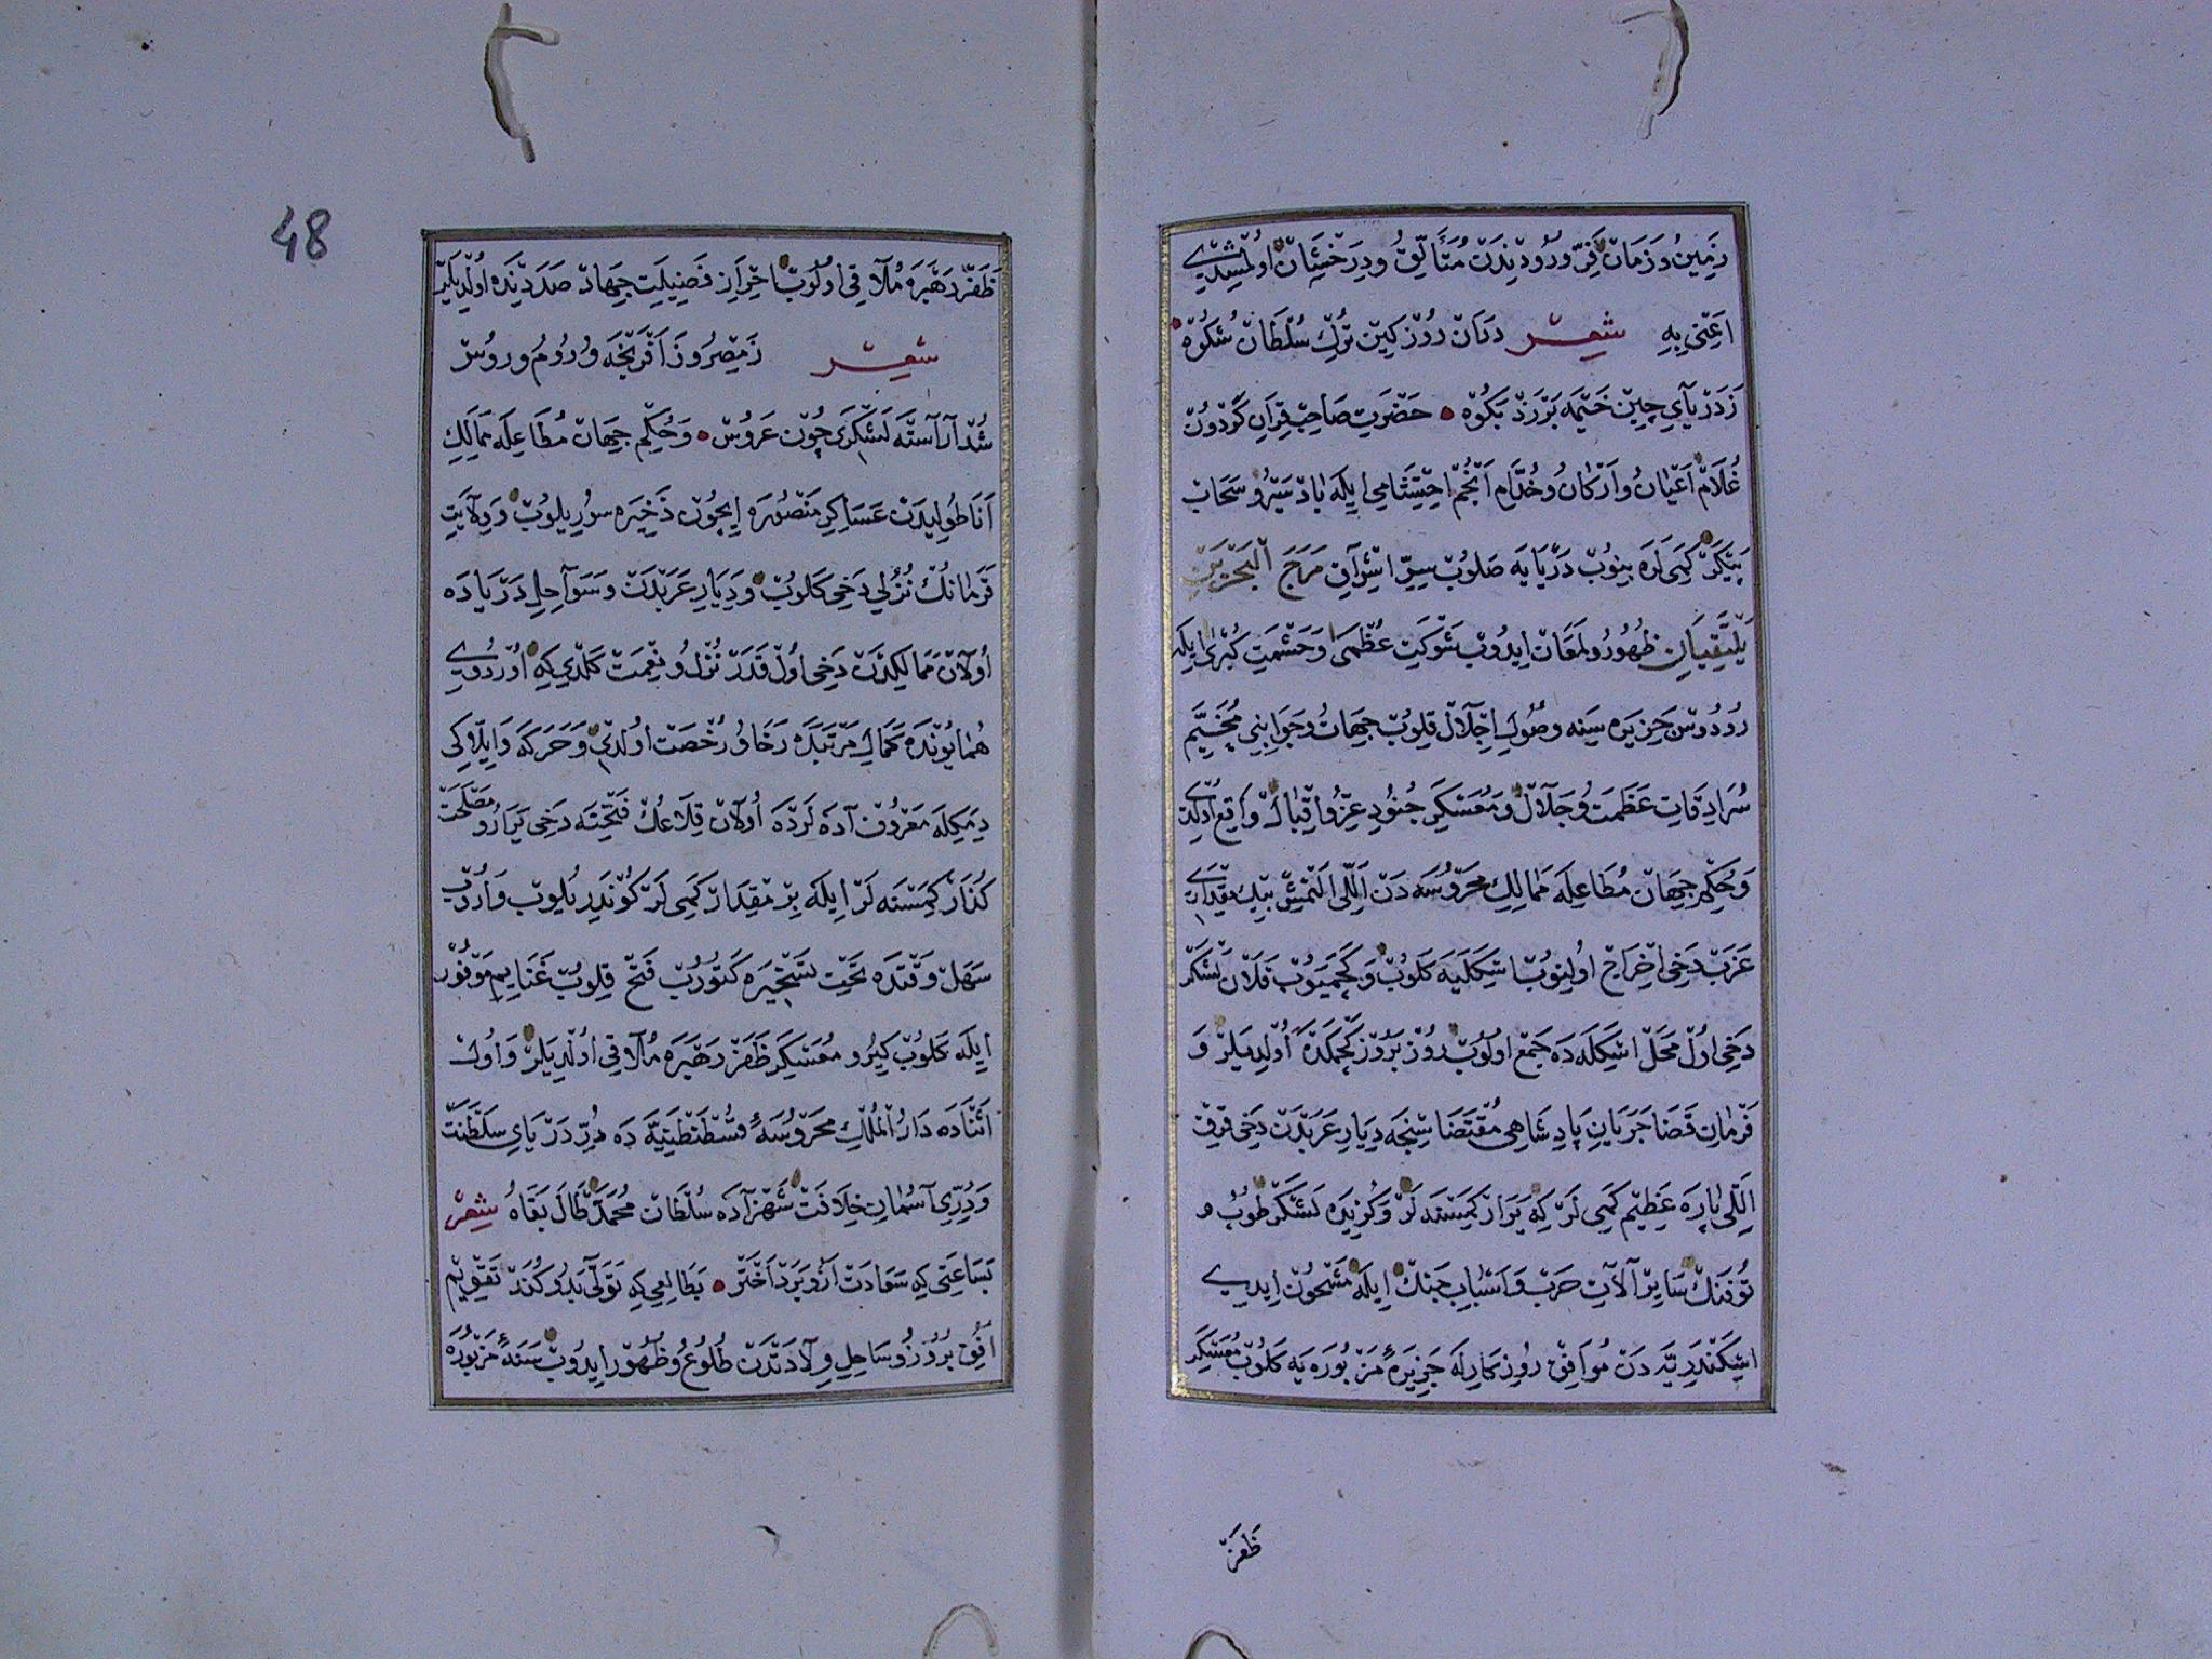 زَمِينُ وَ زَمَانْ فَرِّ وُرُودِنْدَنْ مُتَأَلِّقْ وَدِرَخْشَانْ اوُلْمِشِيدِي
اَعْنِي بِهِ شِعِرْ دَرَانْ رُوزْ كِينْ تُرْكِ سُلْطَانْ شُكُوهْ
زَدَرْيَايِ چِينْ خَيْمَه بَرْزَدْ بَكُوهْ حَضْرَتِ صَاحِبْ قِرَانِ گَرْدُونْ
غُلَامْ اَعْيَانُ وَاَرْكَانُ وَخُدَّامِ اَنْجُمْ اِحْتِشَامِي اِيلَه بَادْ سَيْرُ وسَحَابْ
پَيْكَرْ كَمِي لَرَه بِنُوبْ دَرْيَايَه صَلُوبْ سِرِّ اِشْرَاقِ مَرَجَ الْبَحْرَيْنِ
يَلْتَقِيَانِ ظُهُورُ ولَمَعَانْ اِيدُوبْ شَوْكَتِ عُظْمَى وَحَشْمَتِ كُبْرَى ايلَه
رُودُوسْ جَزِيرَه سِينَه وُصُولِ اِجْلَالْ قِلُوبْ جِهَاتُ وجَوَانِبِي مُخَيَّمِ
سُرَادِقَاتِ عَظَمَتُ وجَلَالْ وَمُعَسْكَرِ جُنُودِ عِزُّ واِقْبَالْ وَاقِعْ اُولْدِي
وَحُكْمِ جِهَانْ مُطَاعِلَه مَمَالِكِ مَحْرُوسَه دَنْ اَللّي اَلْتْمِشْ بِيكْ مِقْدَارِي
عَزَبْ دَخِي اِخْرَاجْ اُولِنُوبْ اِسْكَلَيَه كَلُوبْ وَكَچَمَيُوبْ قَلَانْ لَشْكَرْ
دَخِي اوُلْ مَحَلّ اِسْكَلَه دَه جَمْعْ اوُلُوبْ رُوزْ بَرُوزْ كَچْمَكْدَه اوُلْدِيلَرْ وَ
فَرْمَانِ قَضَا جَرَيَانِ پَادِشَاهِي مُقْتَضَاسِنْجَه دِيَارِ عَرَبْدَنْ دَخِي قِرْقْ
اَللّي پَارَه عَظِيمْ كَمِي لَرْ كِه يَرَارْ كِمَسْنَه لَرْ وَكُزِيدَه لَشْكَرْ طُوبُ و
تُوفَنْكْ سَايِرْ آلَاتِ حَرْبْ وَاَسْبَابِ جَنْكْ اِيلَه مَشْحُونْ اِيدِي
اِسْكَنْدَرِيَّه دَنْ مُوَافِقْ رُوزْكَارِلَه جَزِيرَهٔ مَزْبُورَه يَه كَلُوبْ مُعَسْكَرِ
ظَفَرْ
48
ظَفَرْ رَهْبَرَه مُلَاقِي اوُلُوبْ اِحْرَازِ فَضِيلَتِ جِهَادْ صَدَدِنْدَه اوُلْدِيلَرْ
شِعِرْ زَمِصْرُ وزَ اَفْرَنْجَه وُ رُومُ وروُسْ
شُدْ آرَاَسْتَه لَشْكَرِي چُونْ عَرُوسْ وَحُكْمِ جِهَانْ مُطَاعِلَه مَمَالِكِ
اَنَاطُولِيدَنْ عَسَاكِرِ مَنْصُورَه اِيچُونْ ذَخِيرَه سُورِيلُوبْ وَوِلَايَتِ
قَرَمَانُكْ نُزُلِي دَخِي كَلُوبْ وَدِيَارِ عَرَبْدَنْ وَسَوَاحِلِ دَرْيَادَه
اُولَانْ مَمَالِكْدَنْ دَخِي اُولْ قَدَرْ نُزْلُ ونِعْمَتْ كَلْدِي كِه اُورْدُويِ
هُمَايُونْدَه كَمَالِ مَرْتَبَدَه رَخَاوُ رُخْصَتْ اوُلْدِي وَحَرَكَه وَاِيلَاكِي
دِمَكِلَه مَعْرُوفْ آدَه لَرْدَه اُولَانْ قِلَاعُكْ فَتْحِنَه دَخِي يَرَارُ ومَصْلَحَتْ
كُذَارْ كِمَسْنَه لَرْ اِيلَه بِرْ مِقْدَارْ كَمِي لَرْ كُونْدَرِيلُوبْ وَارُوبْ
سَهْلْ وَقْتدَه تَحْتِ تَسْخِيرَه كَتُورُبْ فَتْحْ قِلُوبْ غَنَايِمِ مَوْفُورْ
اِيلَه كَلُوبْ كِيرُو مُعَسْكَرِ ظَفَرْ رَهْبَرَه مُلَاقِي اوُلْدِيلَرْ وَاوُلْ
اَثْنَادَه دَارُ الْمُلْكِ مَحْرُوسَهٔ قُسْطَنْطَنِيَّه دَه دُرِّ دَرْيَايِ سَلْطَنَتْ
وَدُرِّيِ آسُمَانِ خِلَافَتْ شَهْزَادَه سُلْطَانْ مُحَمَّدْ طَالَ بَقَاهُ شِعِرْ
بَسَاعَتِي كِه سَعَادَتْ اَزُو بَرَدْ اَخْتَرْ بَطَالِعِي كِه تَوَلَّى بَدُو كُنَدْ تَقْوِيمْ
اُفُقِ بُرُوزُ وسَاحِلِ وِلَادَتْدَنْ طُلُوعُ وظُهُورْ اِيدُوبْ سَنَهٔ مَزْبُورَه